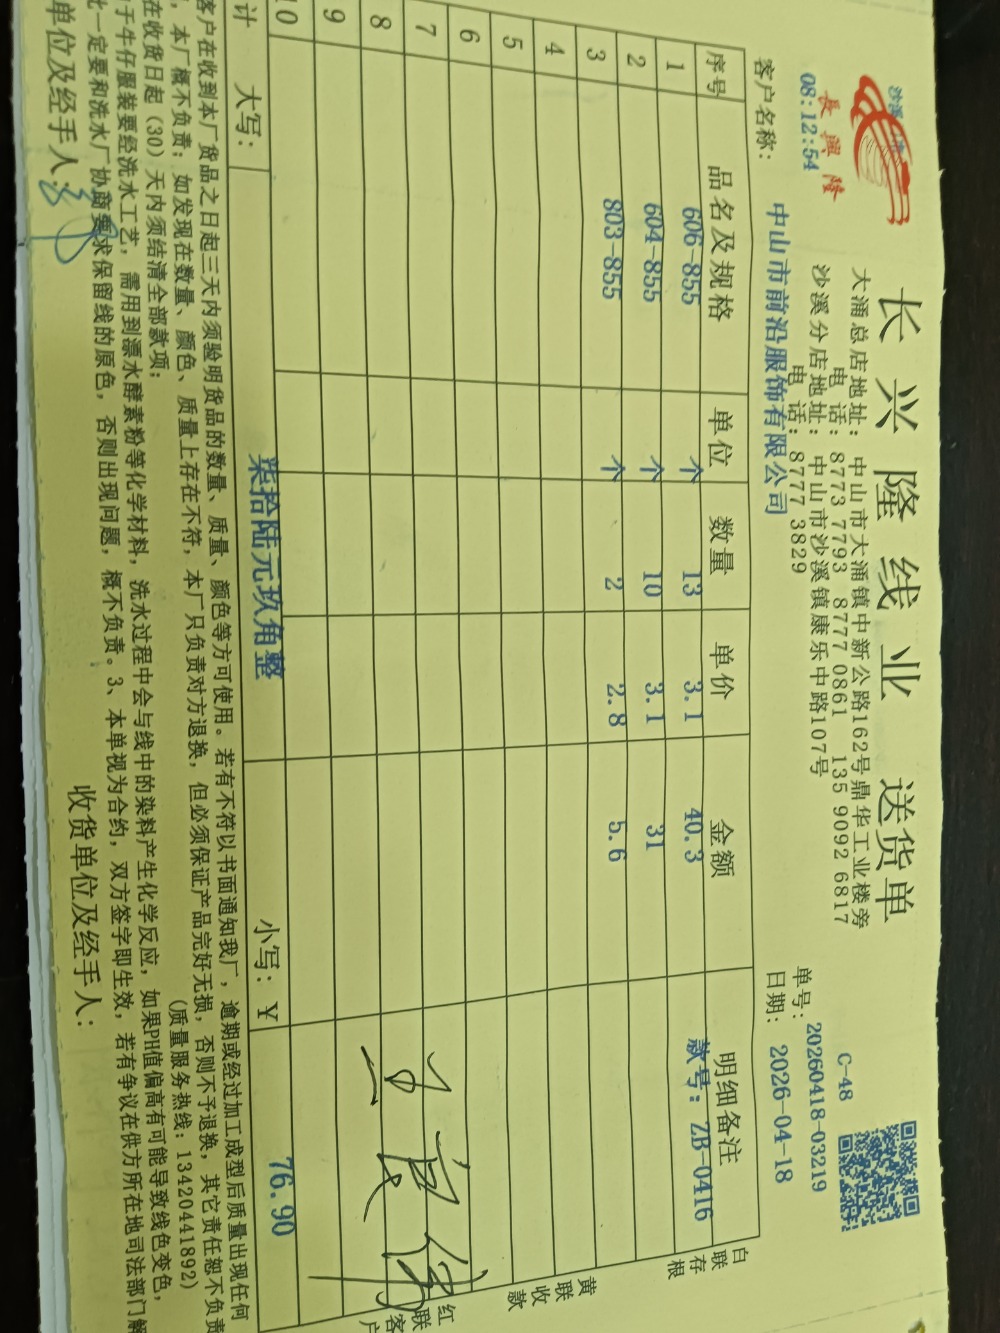 长兴隆线业 送货单
長興隆
08:12:54
大涌总店地址:中山市大涌镇中新公路162号鼎华工业楼旁
电 话:8773 7793 8777 0861 135 9092 6817
沙溪分店地址:中山市沙溪镇康乐中路107号
电 话:8777 3829
C-48
单号:20260418-03219
客户名称:中山市前沿服饰有限公司
日期:2026-04-18
序号 品名及规格 单位 数量 单价 金额 明细备注
1 606-855 个 13 3.1 40.3 款号:ZB-0416
2 604-855 个 10 3.1 31
3 803-855 个 2 2.8 5.6
4
5
6
7
8
9
10
白联存根
黄联收款
红联客户
计 大写: 柒拾陆元玖角整 小写:¥ 76.90
客户在收到本厂货品之日起三天内须验明货品的数量、质量、颜色等方可使用。若有不符以书面通知我厂,逾期或经过加工成型后质量出现任何
,本厂概不负责;如发现在数量、颜色、质量上存在不符,本厂只负责对方退换,但必须保证产品完好无损,否则不予退换,其它责任恕不负责
在收货日起(30)天内须结清全部款项; (质量服务热线:13420441892)
于牛仔服装要经洗水工艺,需用到漂水酵素粉等化学材料,洗水过程中会与线中的染料产生化学反应,如果PH值偏高有可能导致线色变色,
此一定要和洗水厂协商要求保留线的原色,否则出现问题,概不负责。3、本单视为合约,双方签字即生效,若有争议在供方所在地司法部门解
单位及经手人:
收货单位及经手人: